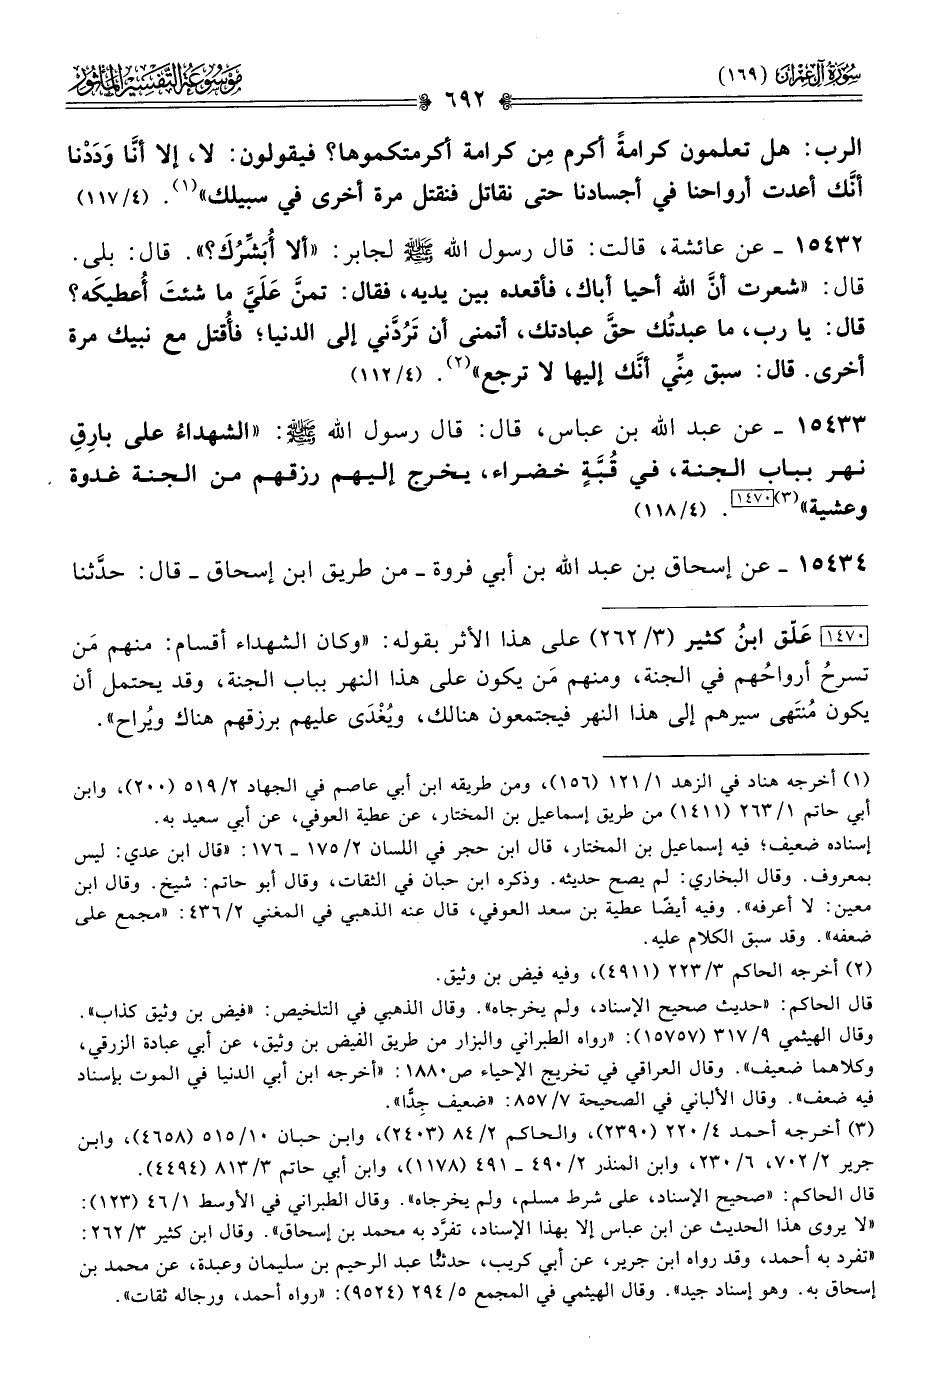 سُورَةُ آلِ عِمْرَان (١٦٩)
مَوْسُوعَةُ التَّفْسِيرِ المَأْثُورِ
٦٩٢
الرب: هل تعلمون كرامةً أكرم مِن كرامة أكرمتكموها؟ فيقولون: لا، إلا أنَّا وَدَدْنا
أنَّك أعدت أرواحنا في أجسادنا حتى نقاتل فنقتل مرة أخرى في سبيلك»(١). (٤/ ١١٧)
١٥٤٣٢ ـ عن عائشة، قالت: قال رسول الله ﷺ لجابر: «ألا أُبَشِّرُكَ؟». قال: بلى.
قال: «شعرت أنَّ الله أحيا أباك، فأقعده بين يديه، فقال: تمنَّ عَلَيَّ ما شئتَ أُعطيكَه؟
قال: يا رب، ما عبدتُك حقَّ عبادتك، أتمنى أن تَرُدَّني إلى الدنيا؛ فأُقتل مع نبيك مرة
أخرى. قال: سبق مِنِّي أنَّك إليها لا ترجع»(٢). (٤/ ١١٢)
١٥٤٣٣ ـ عن عبد الله بن عباس، قال: قال رسول الله ﷺ: «الشهداءُ على بارِقِ
نهر بباب الجنة، في قُبَّةٍ خضراء، يخرج إليهم رزقهم من الجنة غدوة
وعشية»(٣)[١٤٧٠]. (٤/ ١١٨)
١٥٤٣٤ ـ عن إسحاق بن عبد الله بن أبي فروة ـ من طريق ابن إسحاق ـ قال: حدَّثنا
[١٤٧٠] عَلّق ابنُ كثير (٣/ ٢٦٢) على هذا الأثر بقوله: «وكان الشهداء أقسام: منهم مَن
تسرحُ أرواحُهم في الجنة، ومنهم مَن يكون على هذا النهر بباب الجنة، وقد يحتمل أن
يكون مُنتَهى سيرهم إلى هذا النهر فيجتمعون هنالك، ويُغْدَى عليهم برزقهم هناك ويُراح».
(١) أخرجه هناد في الزهد ١/ ١٢١ (١٥٦)، ومن طريقه ابن أبي عاصم في الجهاد ٢/ ٥١٩ (٢٠٠)، وابن
أبي حاتم ١/ ٢٦٣ (١٤١١) من طريق إسماعيل بن المختار، عن عطية العوفي، عن أبي سعيد به.
إسناده ضعيف؛ فيه إسماعيل بن المختار، قال ابن حجر في اللسان ٢/ ١٧٥ ـ ١٧٦: «قال ابن عدي: ليس
بمعروف. وقال البخاري: لم يصح حديثه. وذكره ابن حبان في الثقات، وقال أبو حاتم: شيخ. وقال ابن
معين: لا أعرفه». وفيه أيضًا عطية بن سعد العوفي، قال عنه الذهبي في المغني ٢/ ٤٣٦: «مجمع على
ضعفه». وقد سبق الكلام عليه.
(٢) أخرجه الحاكم ٣/ ٢٢٣ (٤٩١١)، وفيه فيض بن وثيق.
قال الحاكم: «حديث صحيح الإسناد، ولم يخرجاه». وقال الذهبي في التلخيص: «فيض بن وثيق كذاب».
وقال الهيثمي ٩/ ٣١٧ (١٥٧٥٧): «رواه الطبراني والبزار من طريق الفيض بن وثيق، عن أبي عبادة الزرقي،
وكلاهما ضعيف». وقال العراقي في تخريج الإحياء ص١٨٨٠: «أخرجه ابن أبي الدنيا في الموت بإسناد
فيه ضعف». وقال الألباني في الصحيحة ٧/ ٨٥٧: «ضعيف جِدًّا».
(٣) أخرجه أحمد ٤/ ٢٢٠ (٢٣٩٠)، والحاكم ٢/ ٨٤ (٢٤٠٣)، وابن حبان ١٠/ ٥١٥ (٤٦٥٨)، وابن
جرير ٢/ ٧٠٢، ٦/ ٢٣٠، وابن المنذر ٢/ ٤٩٠ ـ ٤٩١ (١١٧٨)، وابن أبي حاتم ٣/ ٨١٣ (٤٤٩٤).
قال الحاكم: «صحيح الإسناد، على شرط مسلم، ولم يخرجاه». وقال الطبراني في الأوسط ١/ ٤٦ (١٢٣):
«لا يروى هذا الحديث عن ابن عباس إلا بهذا الإسناد، تفرَّد به محمد بن إسحاق». وقال ابن كثير ٣/ ٢٦٢:
«تفرد به أحمد، وقد رواه ابن جرير، عن أبي كريب، حدثنا عبد الرحيم بن سليمان وعبدة، عن محمد بن
إسحاق به. وهو إسناد جيد». وقال الهيثمي في المجمع ٥/ ٢٩٤ (٩٥٢٤): «رواه أحمد، ورجاله ثقات».